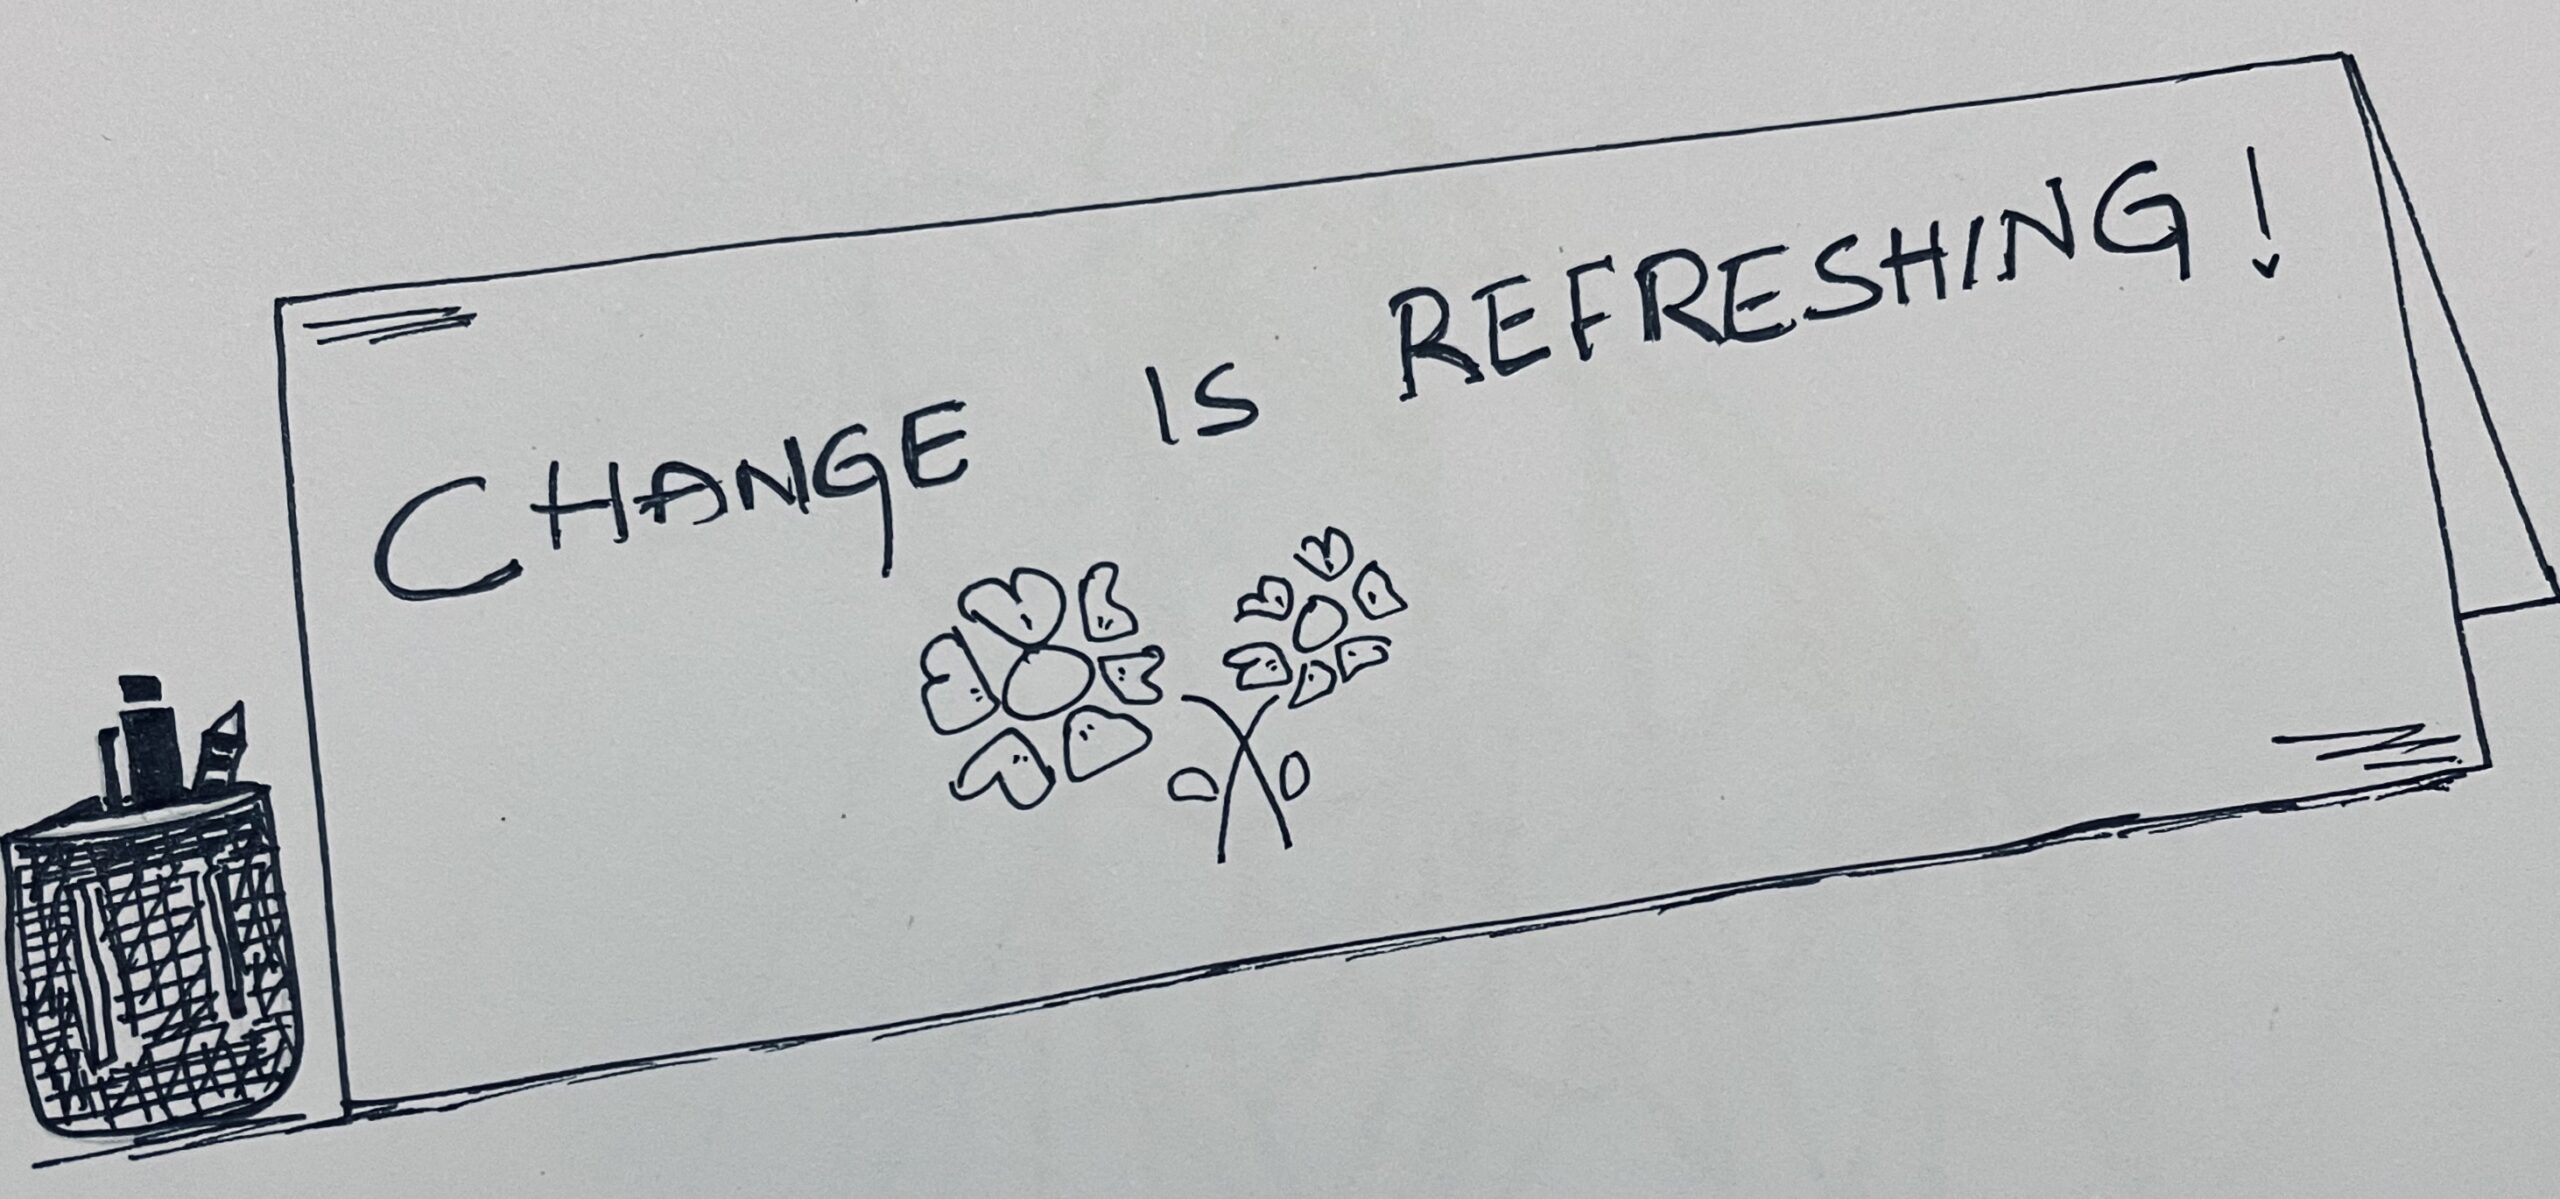 CHANGE IS REFRESHING!